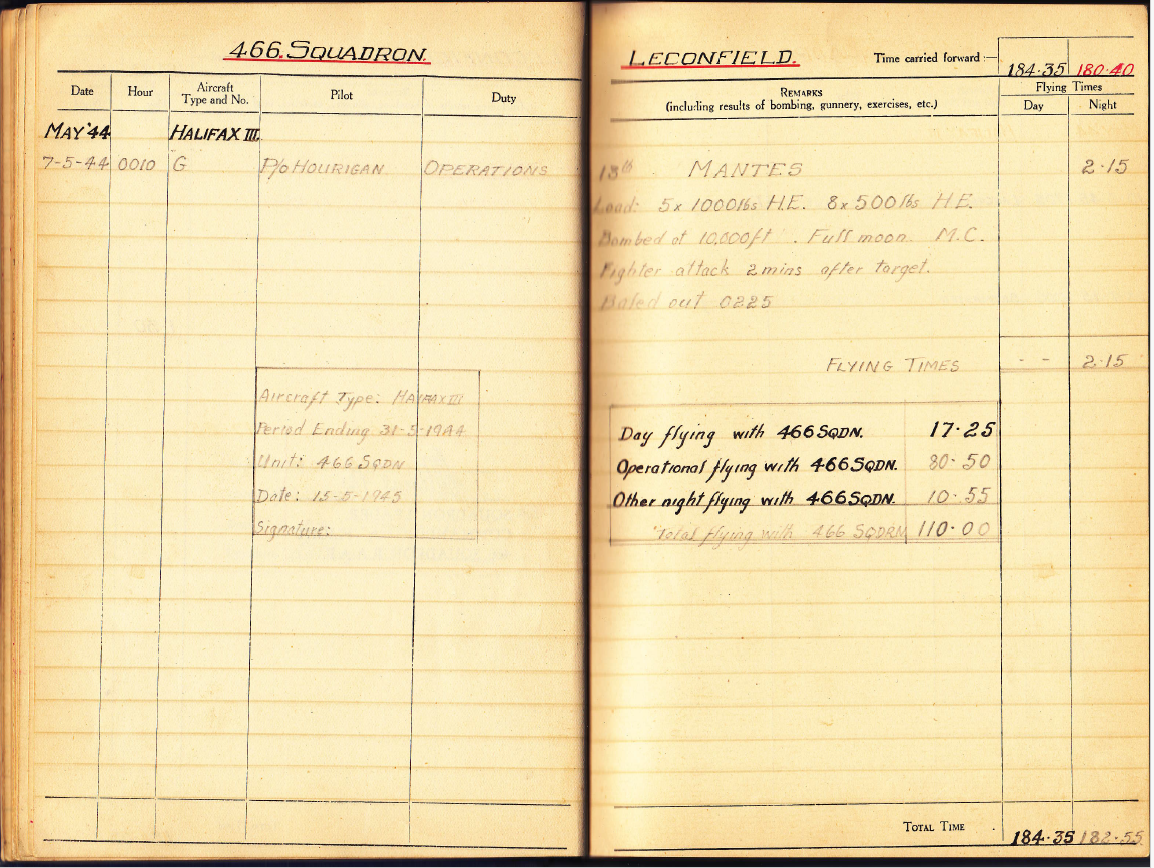 466. SQUADRON.
Date Hour Aircraft Type and No. Pilot Duty
MAY '44 HALIFAX III.
7-5-44 0010 G P/O HOURIGAN OPERATIONS
Aircraft Type: HALIFAX III
Period Ending 31-5-1944
Unit: 466 SQDN
Date: 15-5-1945
Signature:
LECONFIELD. Time carried forward :— 184·35 180·40
REMARKS
(including results of bombing, gunnery, exercises, etc.)
Flying Times
Day Night
13th . MANTES 2·15
Load: 5x 1000lbs H.E. 8x 500lbs H.E.
Bombed at 10,000ft . Full moon. M.C.
Fighter attack 2 mins after target.
Baled out 0225
FLYING TIMES - - 2·15
Day flying with 466 SQDN. 17·25
Operational flying with 466 SQDN. 80·50
Other night flying with 466 SQDN. 10·55
Total flying with 466 SQDRN 110·00
TOTAL TIME 184·35 182·55